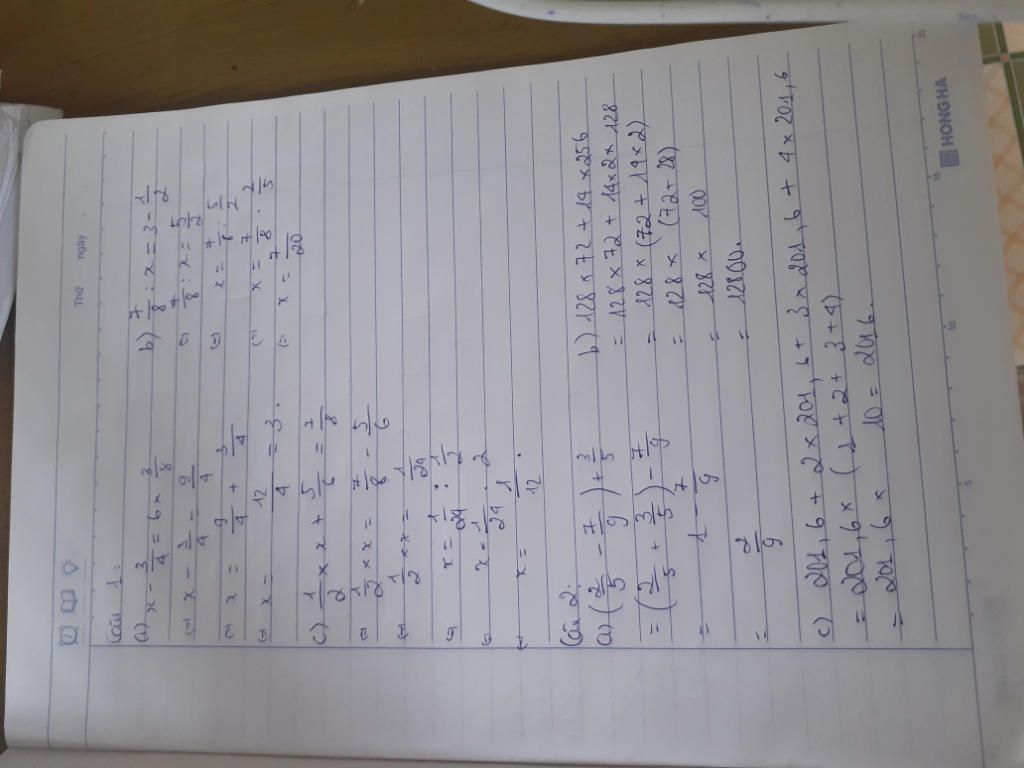 Thứ ngày
Câu 1:
a) x - 3/4 = 6 × 3/8
(=) x - 3/4 = 9/4
(=) x = 9/4 + 3/4
(=) x = 12/4 = 3.
b) 7/8 : x = 3 - 1/2
(=) 7/8 : x = 5/2
(=) x = 7/8 : 5/2
(=) x = 7/8 . 2/5
(=) x = 7/20
c) 1/2 × x + 5/6 = 7/8
(=) 1/2 × x = 7/8 - 5/6
(=) 1/2 × x = 1/24
(=) x = 1/24 : 1/2
(=) x = 1/24 . 2
(=) x = 1/12.
Câu 2.
a) (2/5 - 7/9) + 3/5
= (2/5 + 3/5) - 7/9
= 1 - 7/9
= 2/9
b) 128 × 72 + 14 × 256
= 128 × 72 + 14 × 2 × 128
= 128 × (72 + 14 × 2)
= 128 × (72 + 28)
= 128 × 100
= 12800.
c) 201,6 + 2 × 201,6 + 3 × 201,6 + 4 × 201,6
= 201,6 × (1 + 2 + 3 + 4)
= 201,6 × 10 = 2016.
5 10 15 20
HONG HA